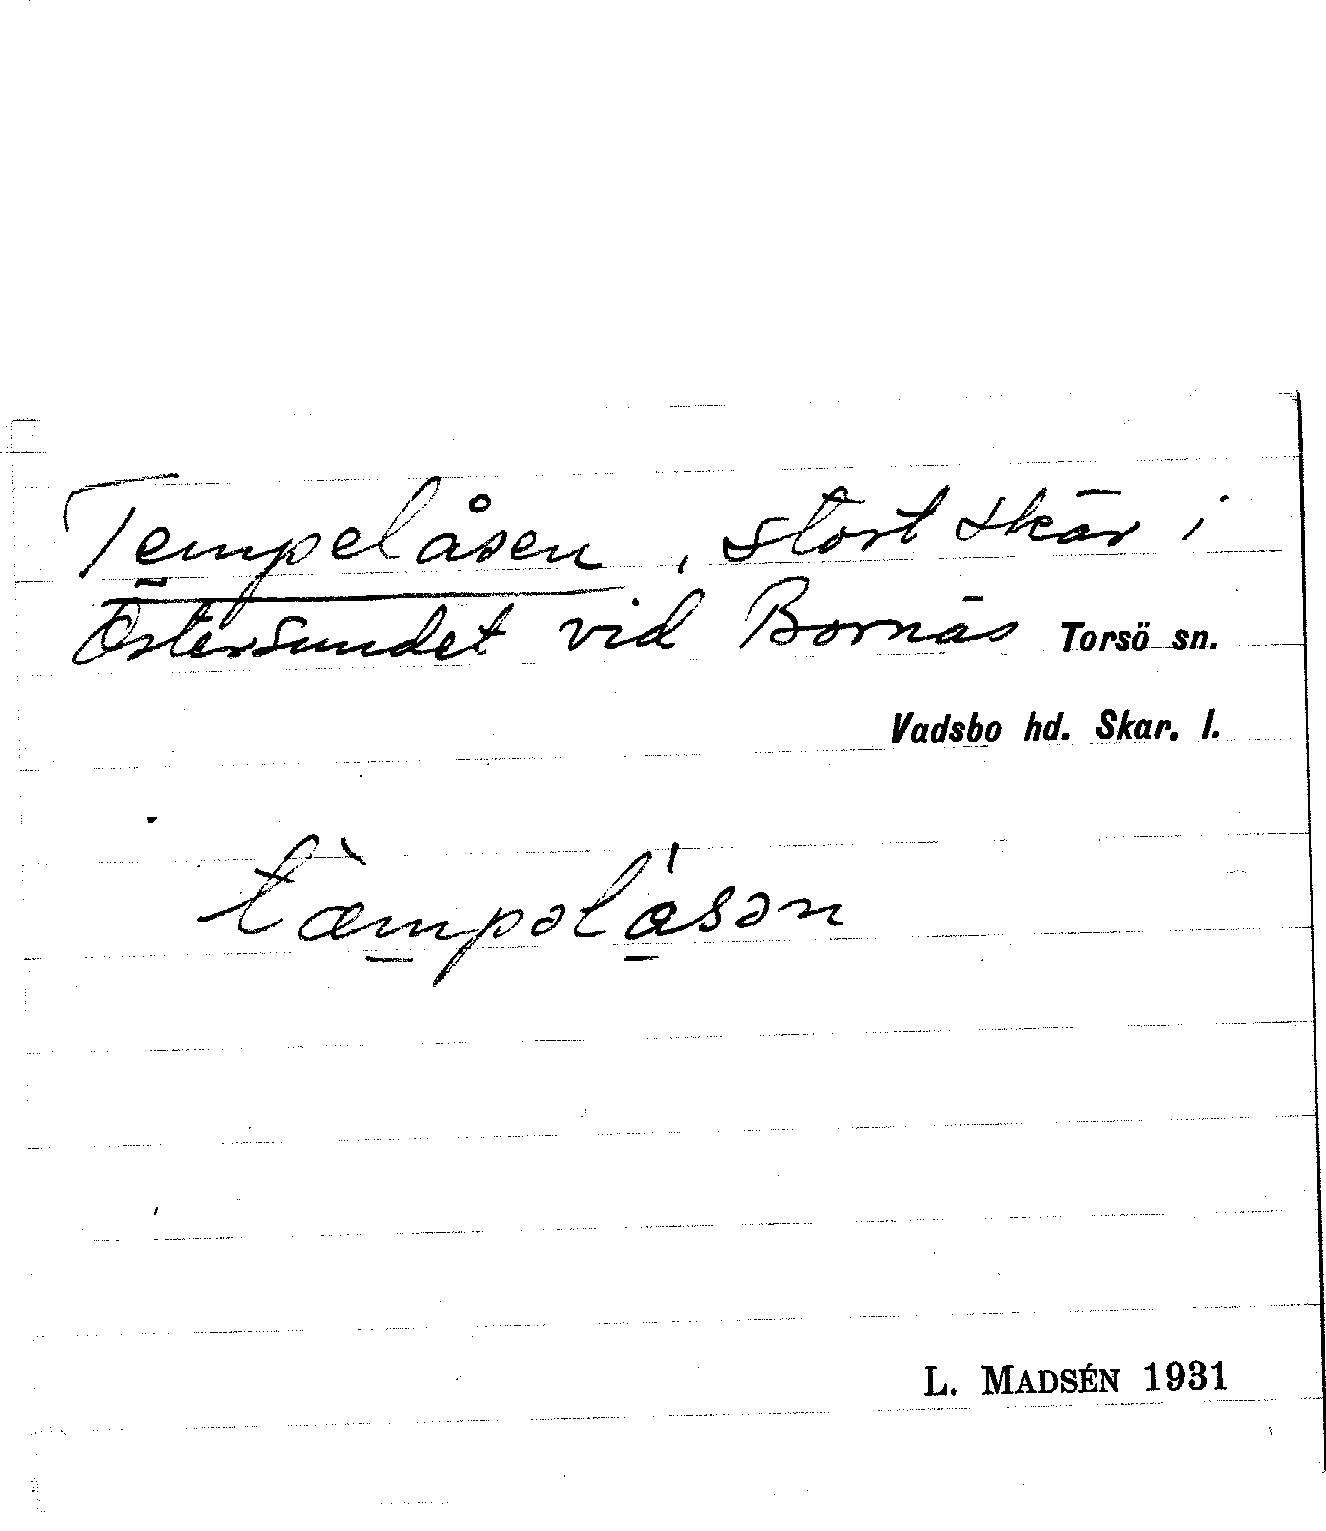 Tempelåsen, stort skär i
Östersundet vid Bornäs Torsö sn.
Vadsbo hd. Skar. l.
tæ̀mpəlá̱sən
L. MADSÉN 1931